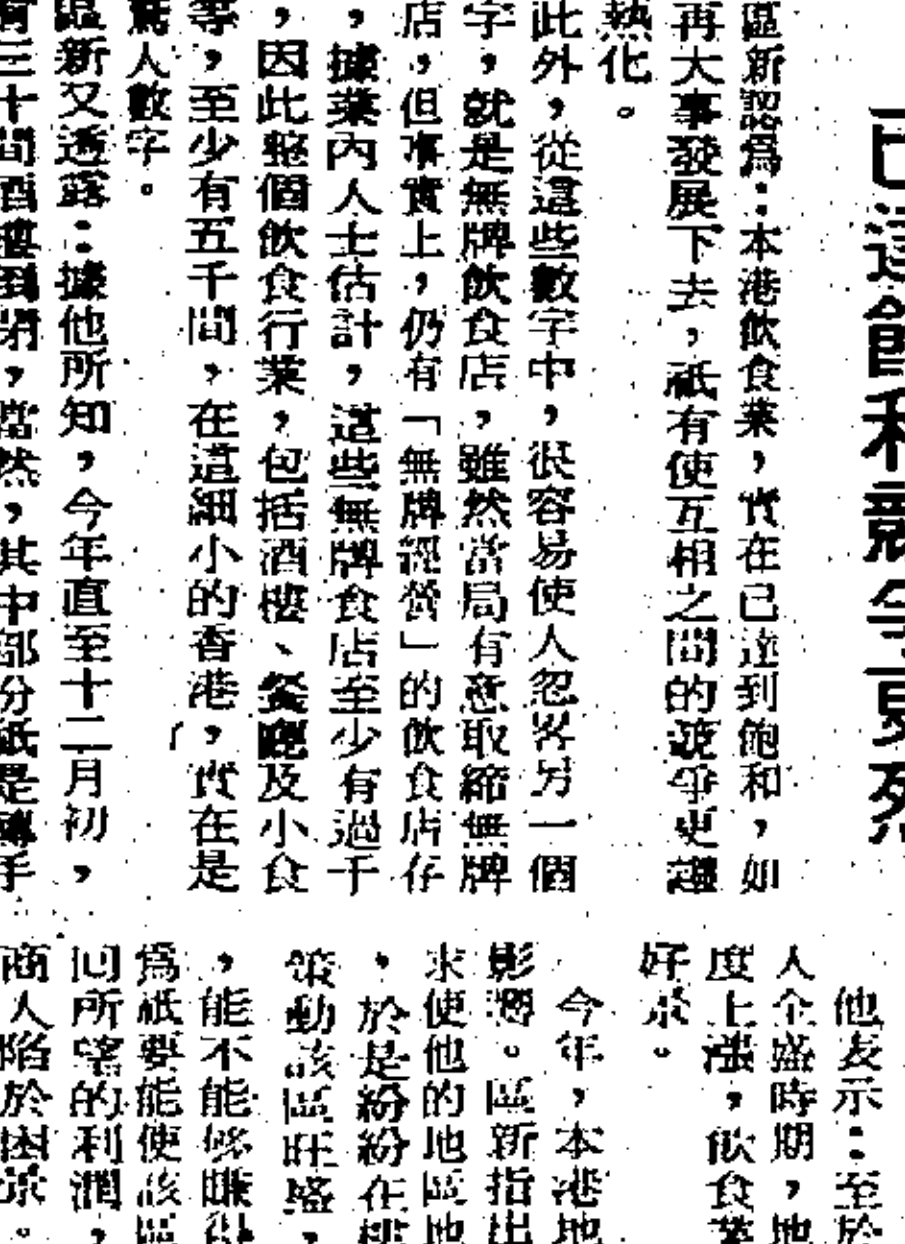 已達飽和競爭更烈
區新認爲：本港飲食業，實在已達到飽和，如
再大事發展下去，祇有使互相之間的競爭更趨
熱化。
此外，從這些數字中，很容易使人忽畧另一個
字，就是無牌飲食店，雖然當局有意取締無牌
店，但事實上，仍有「無牌經營」的飲食店存
，據業內人士估計，這些無牌食店至少有過千
，因此整個飲食行業，包括酒樓、餐廳及小食
等，至少有五千間，在這細小的香港，實在是
驚人數字。
區新又透露：據他所知，今年直至十二月初，
有三十間酒樓倒閉，當然，其中部分祇是轉手
他表示：至於
人全盛時期，地
度上漲，飲食業
好景。
今年，本港地
影響。區新指出
求使他的地區地
，於是紛紛在
策動該區旺盛，
，能不能够賺
爲祇要能使該區
回所的利潤，
商人陷於困景。